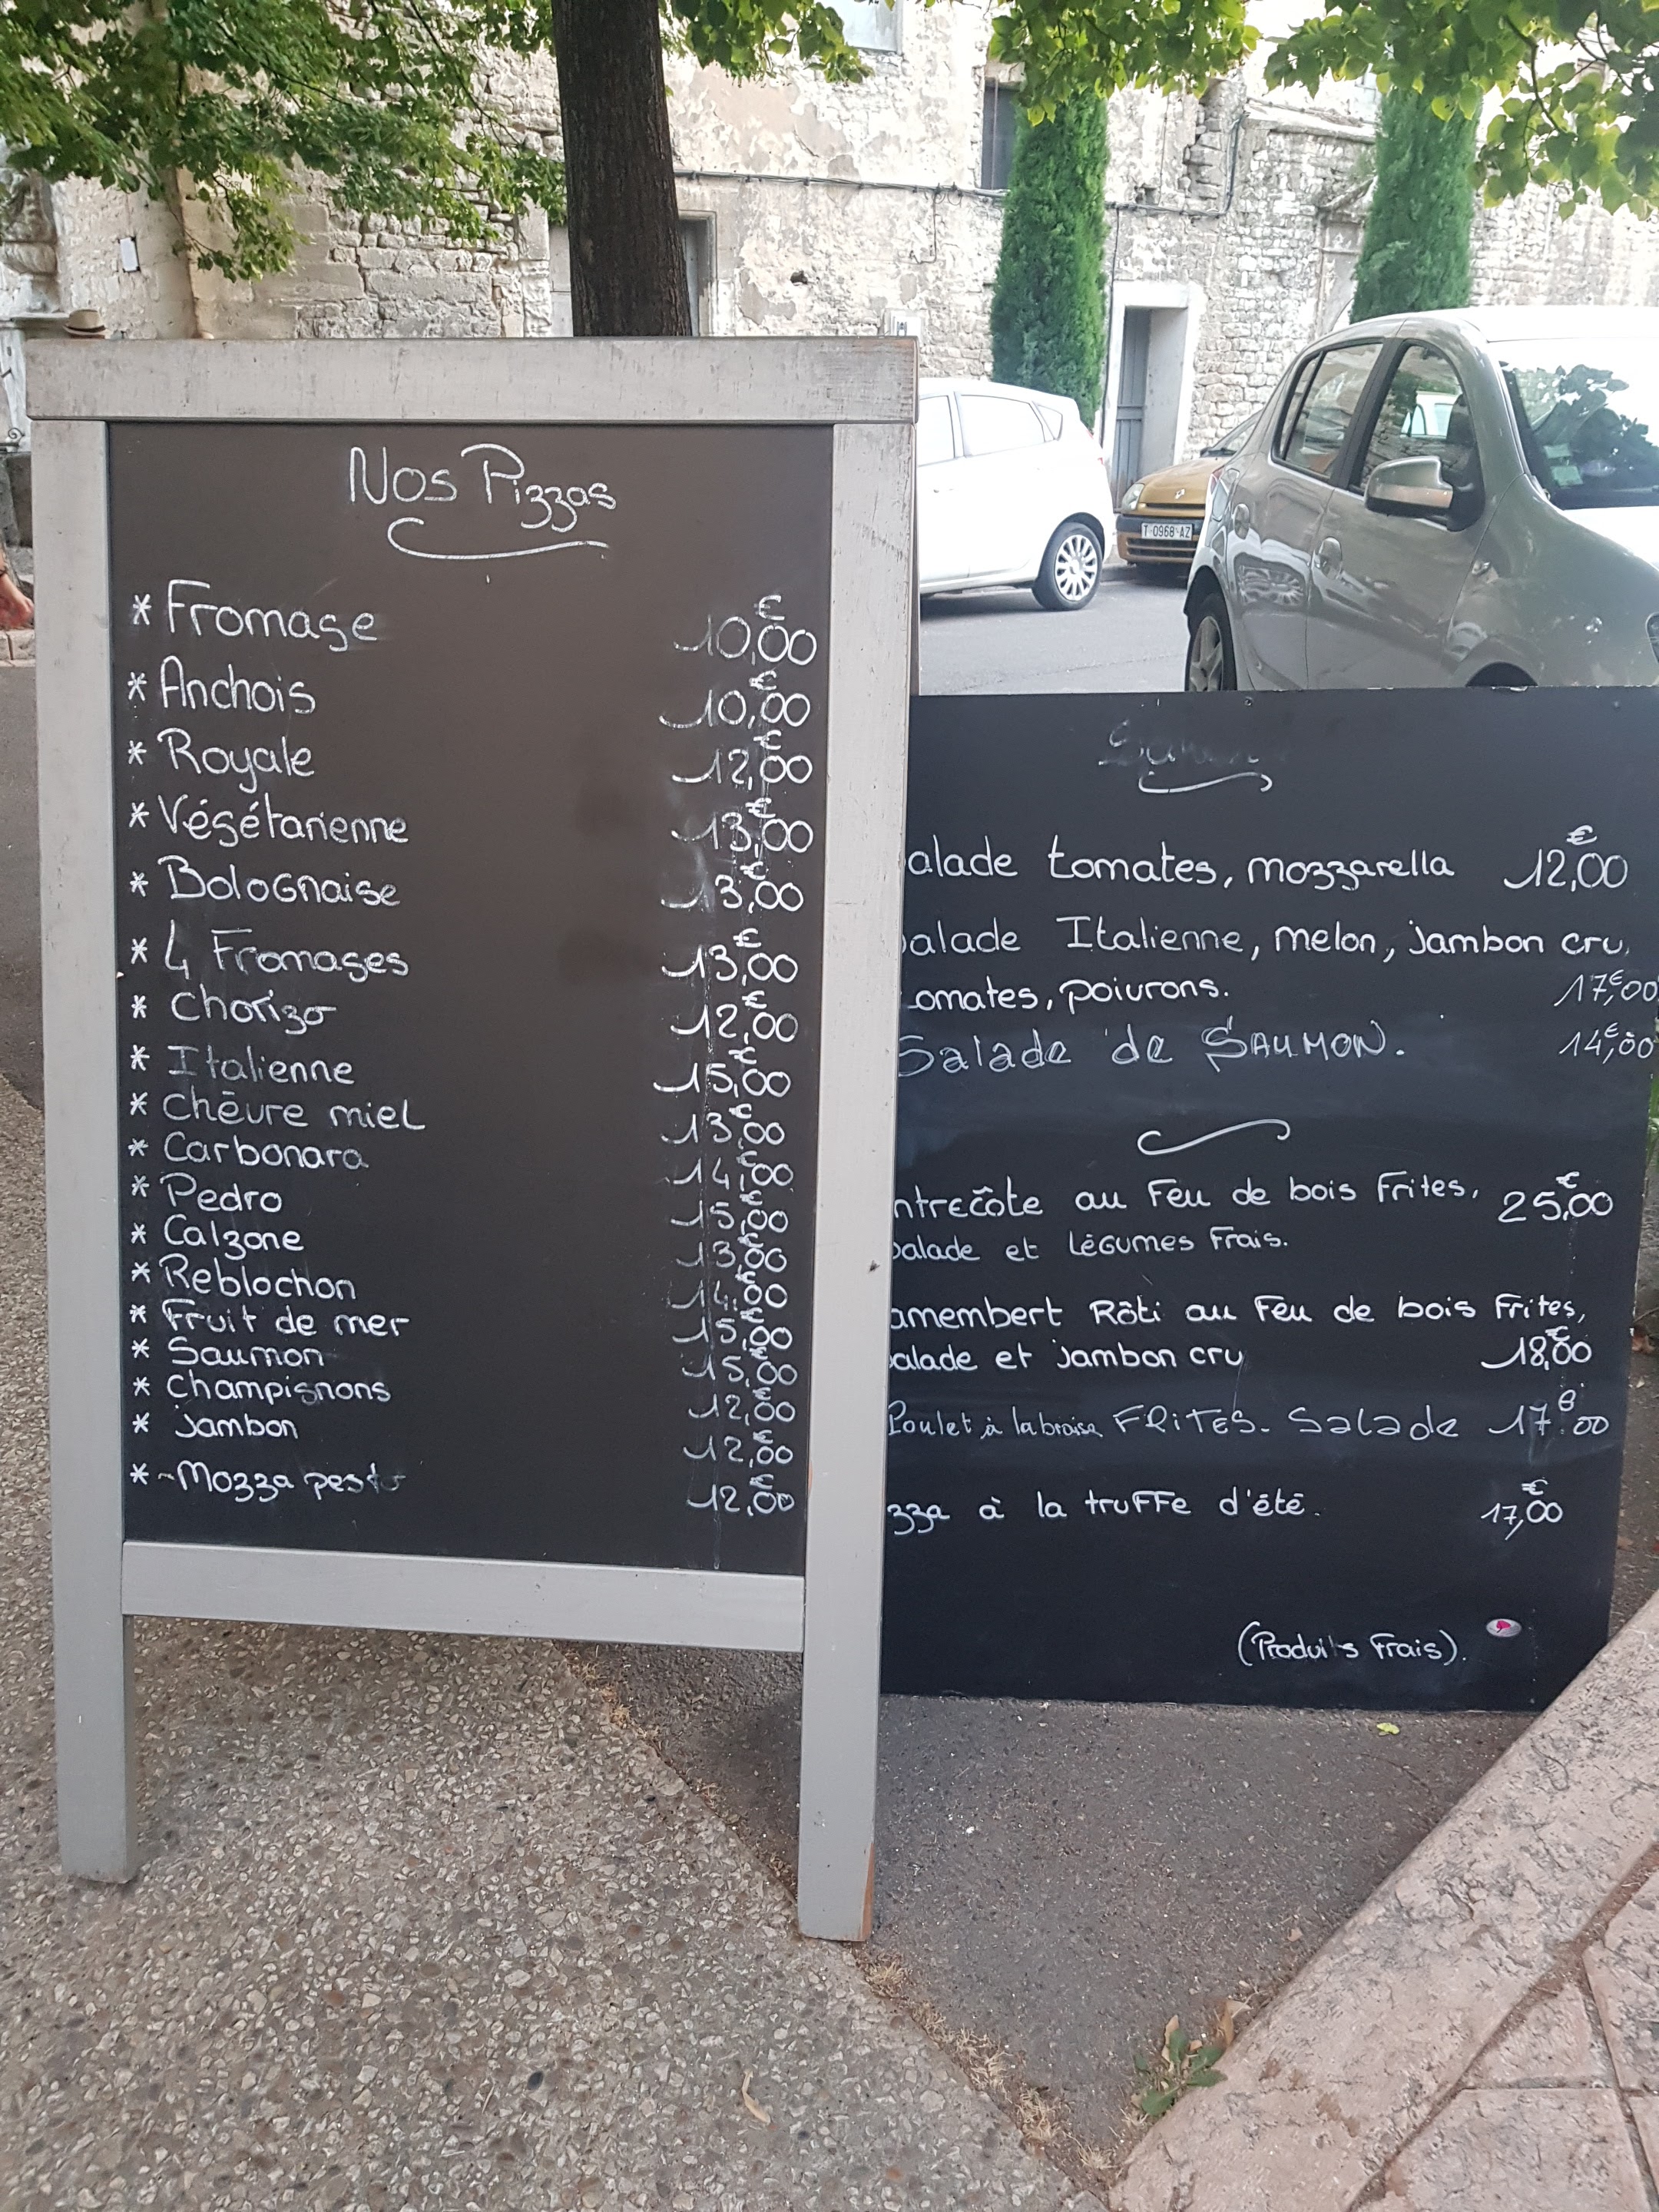 Nos Pizzas
* Fromage 10,00 €
* Anchois 10,00 €
* Royale 12,00 €
* Végétarienne 13,00 €
* Bolognaise 13,00 €
* 4 Fromages 13,00 €
* Chorizo 12,00 €
* Italienne 15,00 €
* Chèvre miel 13,00 €
* Carbonara 14,00 €
* Pedro 15,00 €
* Calzone 13,00 €
* Reblochon 14,00 €
* Fruit de mer 15,00 €
* Saumon 15,00 €
* Champignons 12,00 €
* Jambon 12,00 €
* Mozza pesto 12,00 €
alade tomates, mozzarella 12,00 €
alade Italienne, melon, jambon cru,
omates, poivrons. 17,00 €
Salade de SAUMON. 14,00 €
ntrecôte au Feu de bois Frites, 25,00 €
alade et Légumes Frais.
amembert Rôti au Feu de bois Frites,
alade et jambon cru 18,00 €
Poulet à la braise FRITES. Salade 17.00 €
zza à la truffe d'été. 17,00 €
(Produits Frais).
T 0968 AZ